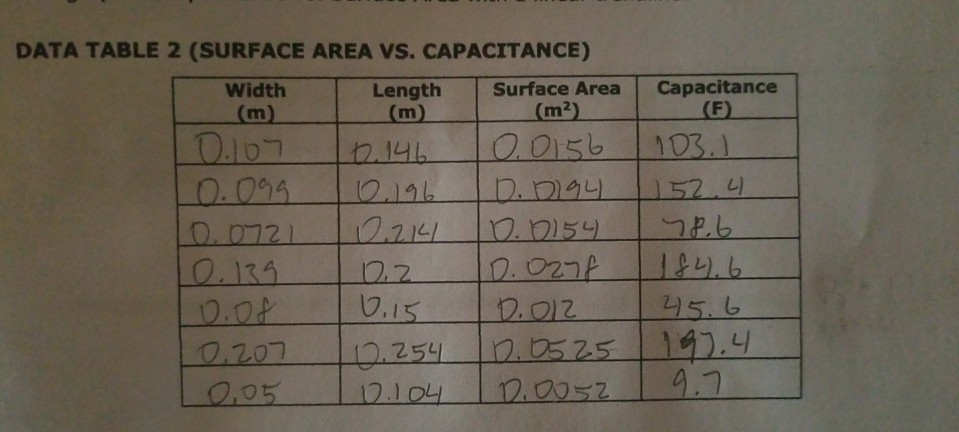 DATA TABLE 2 (SURFACE AREA VS. CAPACITANCE)
Width (m) Length (m) Surface Area (m²) Capacitance (F)
0.107 0.146 0.0156 103.1
0.099 0.196 0.0194 152.4
0.0721 0.214 0.0154 78.6
0.139 0.2 0.0278 184.6
0.08 0.15 0.012 45.6
0.207 0.254 0.0525 197.4
0.05 0.104 0.0052 9.7